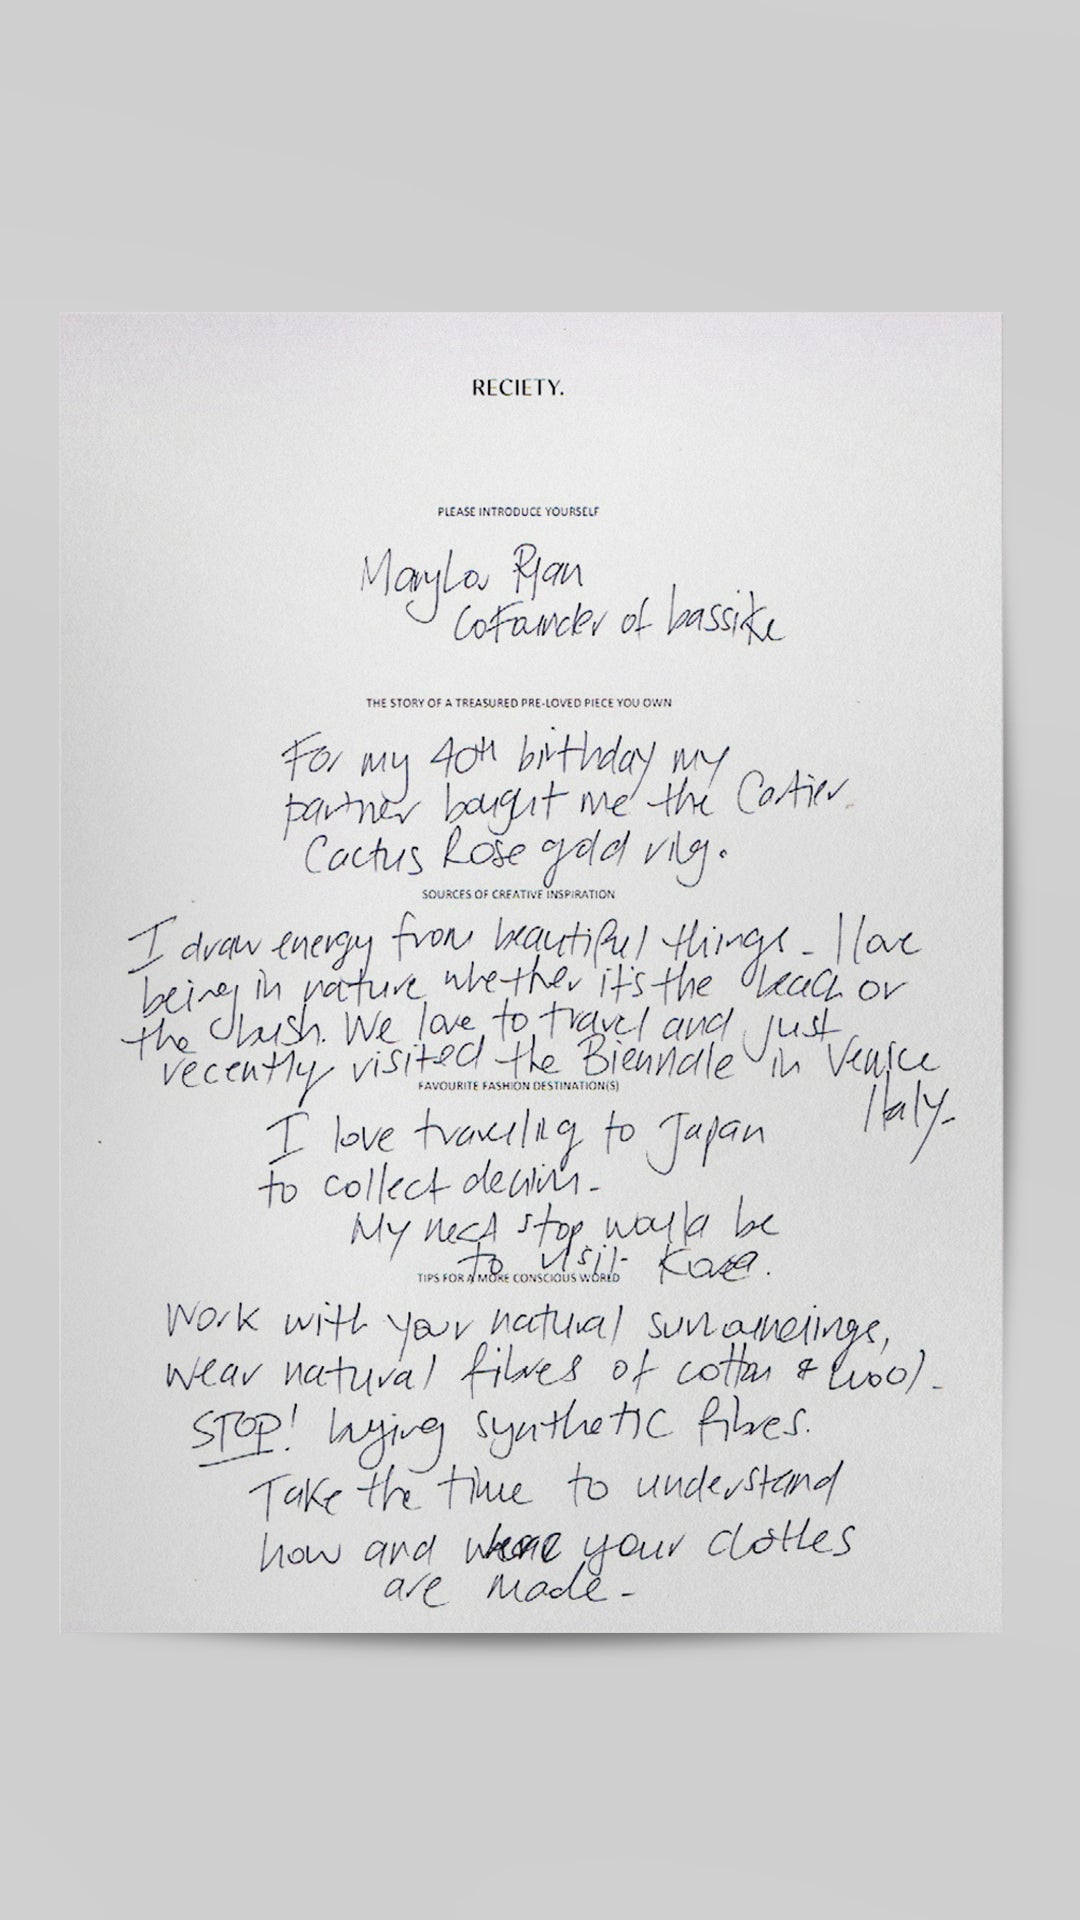 RECIETY.
PLEASE INTRODUCE YOURSELF
MaryLou Ryan
CoFounder of bassike
THE STORY OF A TREASURED PRE-LOVED PIECE YOU OWN
For my 40th birthday my
partner bought me the Cartier
Cactus Rose gold ring.
SOURCES OF CREATIVE INSPIRATION
I draw energy from beautiful things - I love
being in nature whether it's the beach or
the bush. We love to travel and just
recently visited the Biennale in Venice
Italy-
FAVOURITE FASHION DESTINATION(S)
I love traveling to Japan
to collect denim-
My next stop would be
to visit Korea.
TIPS FOR A MORE CONSCIOUS WORLD
Work with your natural surroundings,
wear natural fibres of cotton & wool-
STOP! buying synthetic fibres.
Take the time to understand
how and where your clothes
are made-